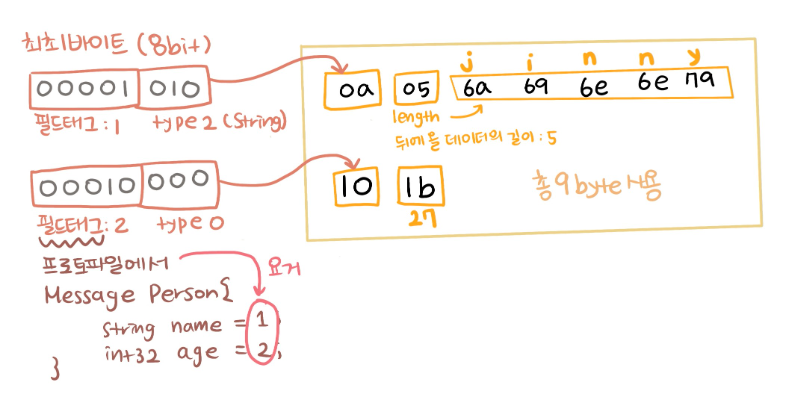 최초1바이트 (8bit)
00001 010
필드태그:1 type2 (String)
j i n n y
0a 05 6a 69 6e 6e 79
length
뒤에올 데이터의 길이:5
00010 000
필드태그:2 type0
10 1b
27
총 9byte사용
프로토파일에서
요거
Message Person{
String name = 1;
int32 age = 2;
}